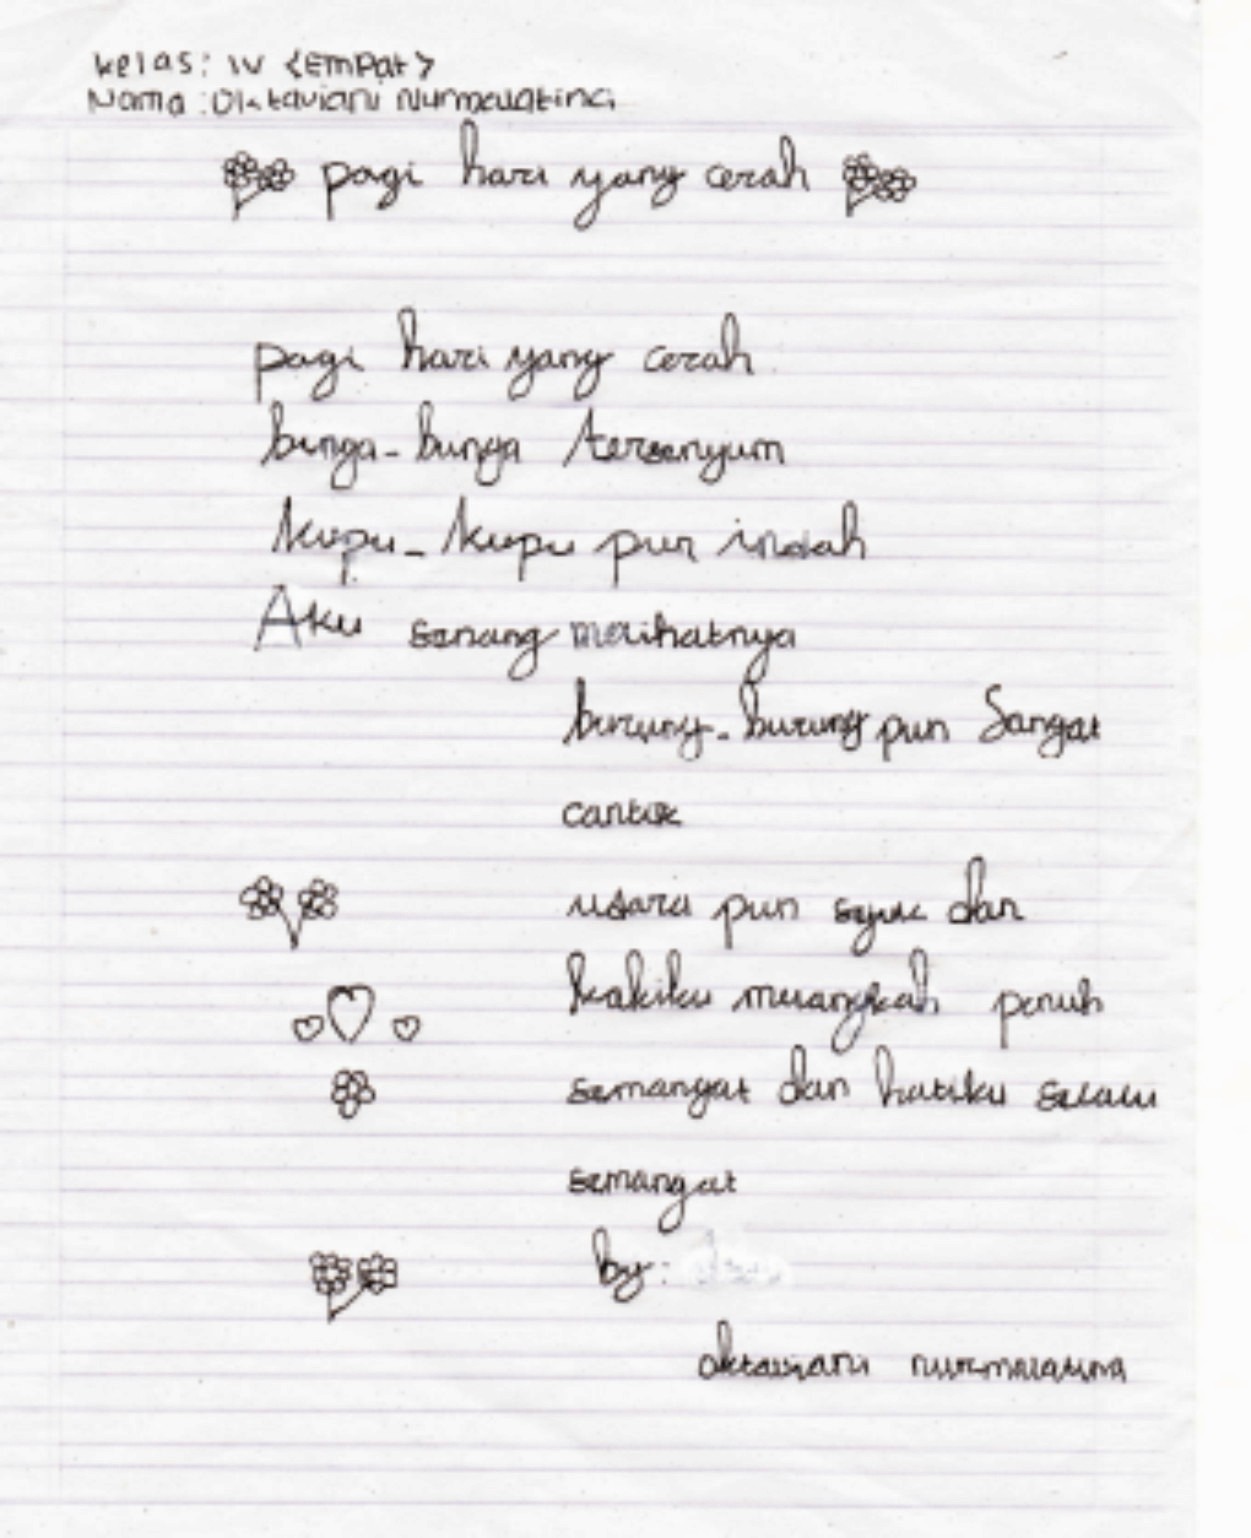 Kelas: IV <Empat>
Nama: Oktaviani Nurmelatina
pagi hari yang cerah
pagi hari yang cerah
bunga-bunga tersenyum
kupu-kupu pun indah
Aku senang melihatnya
burung-burung pun Sangat
cantik
udara pun sejuk dan
kakiku melangkah penuh
semangat dan hatiku selalu
semangat
by:
oktaviani nurmelatina